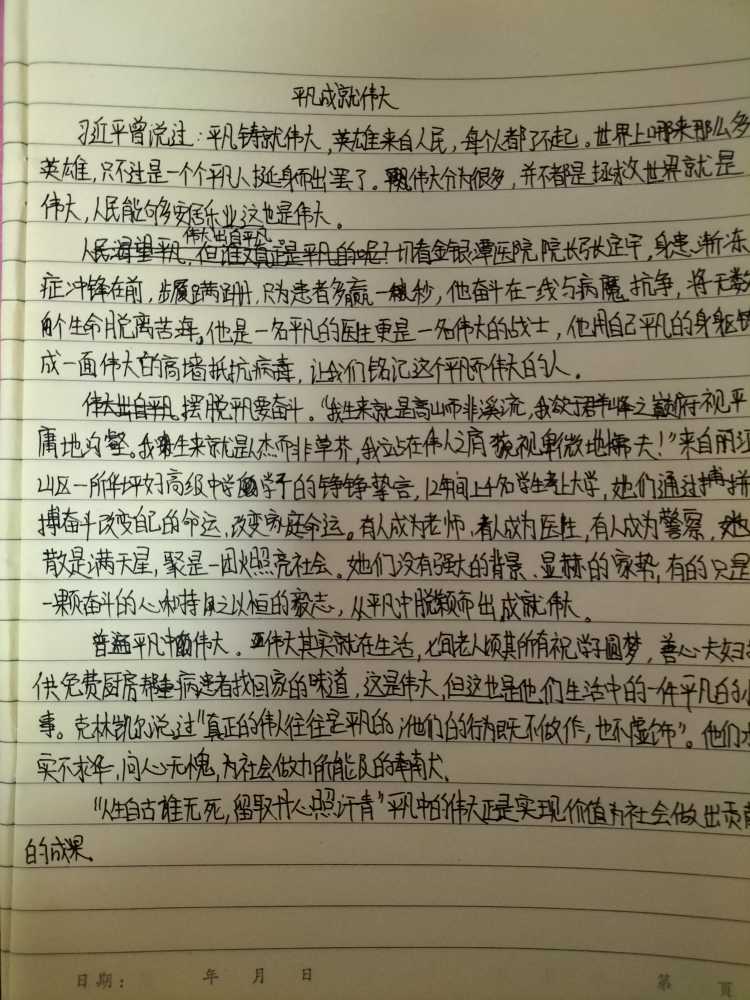 平凡成就伟大
习近平曾说过：平凡铸就伟大，英雄来自人民，每个人都了不起。世界上哪来那么多
英雄，只不过是一个个平凡人挺身而出罢了。伟大分为很多，并不都是拯救世界就是
伟大，人民能够多安居乐业这也是伟大。
伟大出自平凡
人民渴望平凡，但谁又真正是平凡的呢？切看金银潭医院院长张定宇，身患渐冻
症冲锋在前，步履蹒跚，只为患者多赢一秒，他奋斗在一线与病魔抗争，将无数
个生命脱离苦海。他是一名平凡的医生更是一名伟大的战士，他用自己平凡的身躯铸
成一面伟大的高墙抵抗病毒，让我们铭记这个平凡而伟大的人。
伟大出自平凡 摆脱平凡要奋斗。“我生来就是高山而非溪流，我欲于群峰之巅俯视平
庸地沟壑。我生来就是人杰而非草芥，我立在伟人之肩藐视卑微地懦夫！”来自丽江
山区一所华坪女子高级中学的铮铮挚言，12年间上千名学生考上大学，她们通过拼
搏奋斗改变自己的命运，改变家庭命运。有人成为老师，有人成为医生，有人成为警察，她
散是满天星，聚是一团火照亮社会。她们没有强大的背景、显赫的家势，有的只是
一颗奋斗的心和持之以恒的毅志，从平凡中脱颖而出，成就伟大。
普遍平凡中的伟大。伟大其实就在生活，七旬老人倾其所有祝学子圆梦，善心夫妇
供免费厨房帮重病患者找回家的味道，这是伟大，但这也是他们生活中的一件平凡的小
事。克林凯尔说过“真正的伟人往往是平凡的，他们的行为既不做作，也不虚饰”。他们
实不求华，问心无愧，为社会做力所能及的奉南犬。
“人生自古谁无死，留取丹心照汗青”平凡中的伟大正是实现价值为社会做出贡献
的成果。
日期： 年 月 日
第 頁